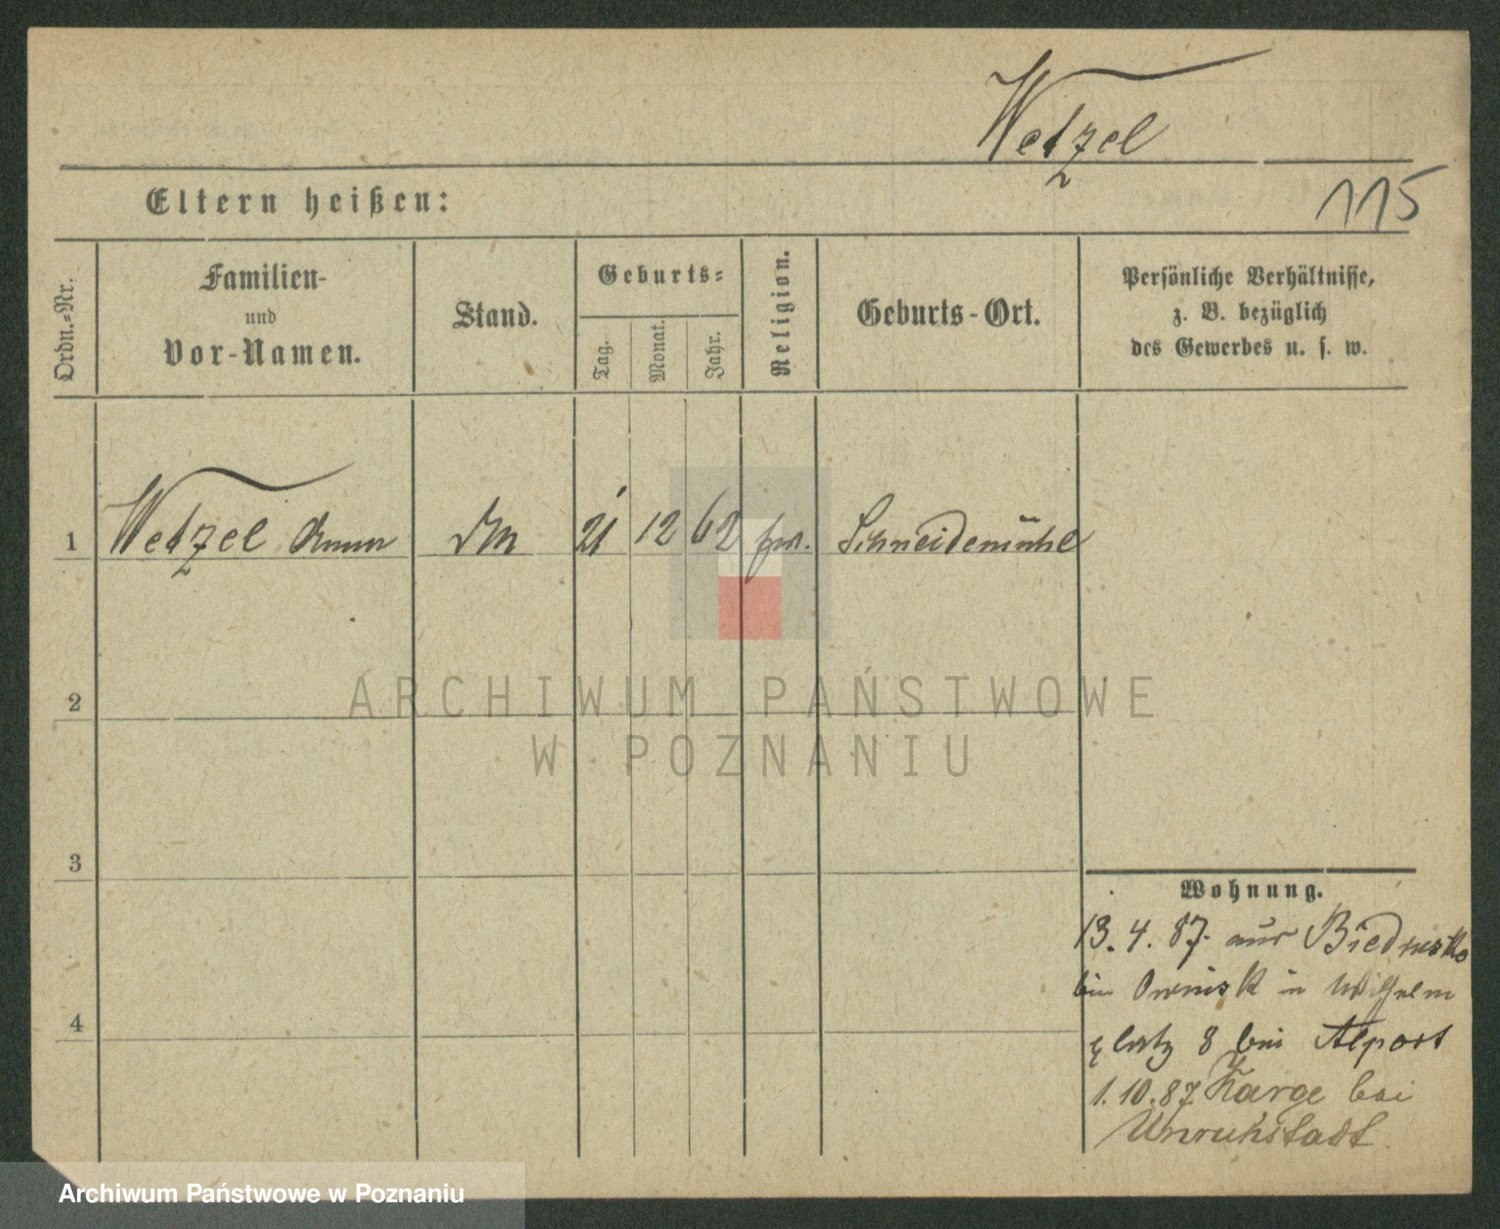 Wetzel
115
Eltern heißen:
Ordn.-Nr.
Familien-
und
Vor-Namen.
Stand.
Geburts-
Tag.
Monat.
Jahr.
Religion.
Geburts-Ort.
Persönliche Verhältnisse,
z. B. bezüglich
des Gewerbes u. s. w.
1 Wetzel Anna 21 12 62 Schneidemühl
2
3
4
ARCHIWUM PAŃSTWOWE
W POZNANIU
Wohnung.
13.4.87. aus Biedrusko
bei Owinsk in Wilhelm
platz 8 bei Alport
1.10.87 Karge bei
Unruhstadt.
Archiwum Państwowe w Poznaniu